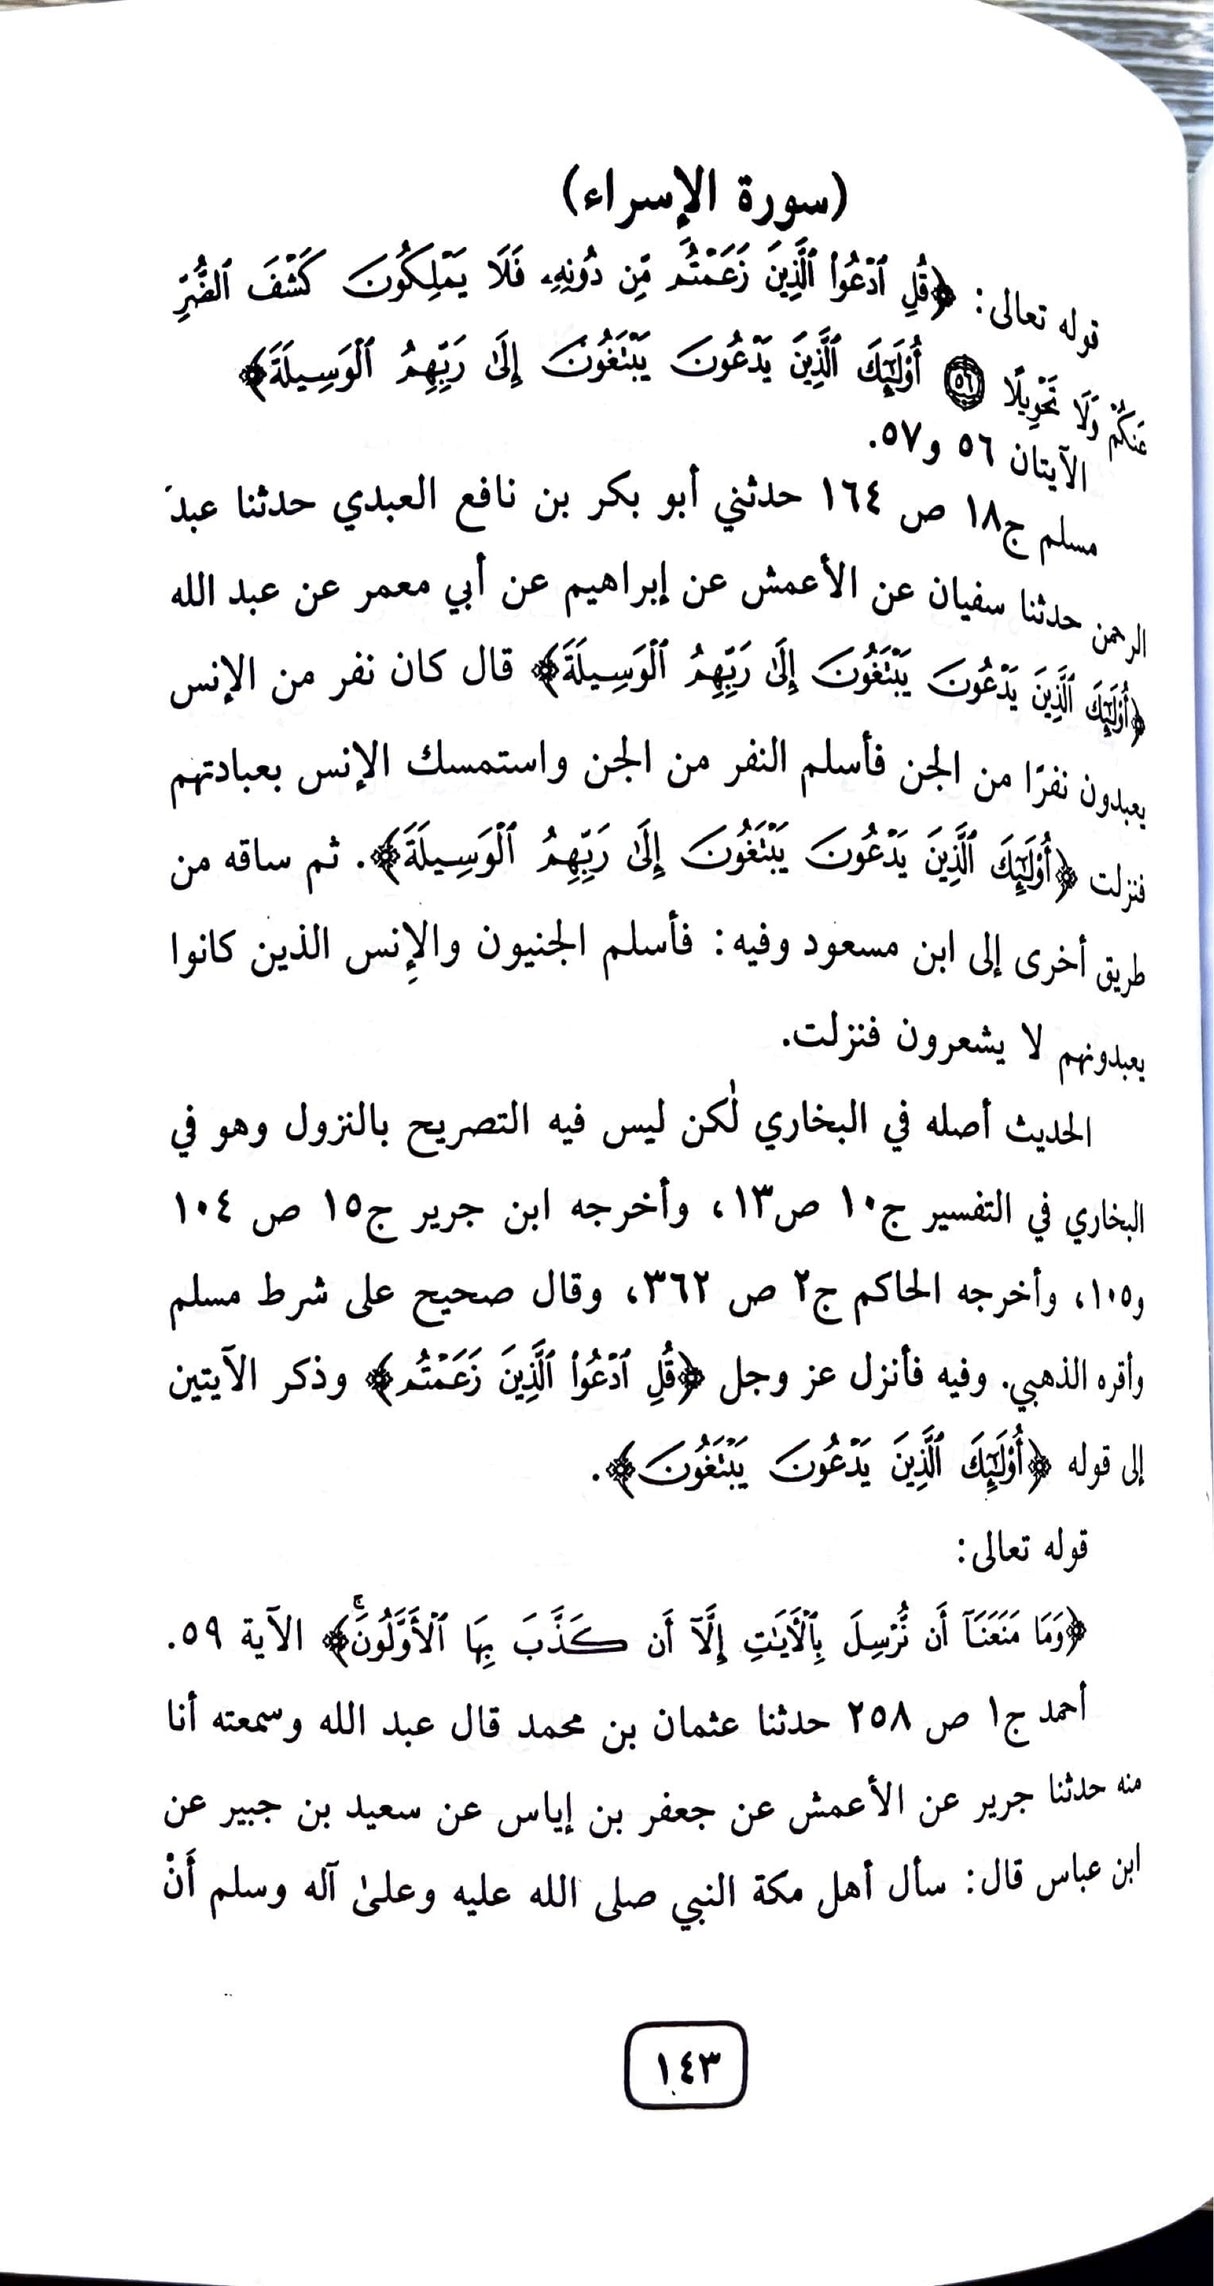 (سورة الإسراء)
قوله تعالى: ﴿قُلِ ٱدْعُوا۟ ٱلَّذِينَ زَعَمْتُم مِّن دُونِهِۦ فَلَا يَمْلِكُونَ كَشْفَ ٱلضُّرِّ
عَنكُمْ وَلَا تَحْوِيلًا ٥٦ أُو۟لَٰٓئِكَ ٱلَّذِينَ يَدْعُونَ يَبْتَغُونَ إِلَىٰ رَبِّهِمُ ٱلْوَسِيلَةَ﴾
الآيتان ٥٦ و٥٧.
مسلم ج١٨ ص ١٦٤ حدثني أبو بكر بن نافع العبدي حدثنا عبدَ
الرحمن حدثنا سفيان عن الأعمش عن إبراهيم عن أبي معمر عن عبد الله
﴿أُو۟لَٰٓئِكَ ٱلَّذِينَ يَدْعُونَ يَبْتَغُونَ إِلَىٰ رَبِّهِمُ ٱلْوَسِيلَةَ﴾ قال كان نفر من الإنس
يعبدون نفرًا من الجن فأسلم النفر من الجن واستمسك الإنس بعبادتهم
فنزلت ﴿أُو۟لَٰٓئِكَ ٱلَّذِينَ يَدْعُونَ يَبْتَغُونَ إِلَىٰ رَبِّهِمُ ٱلْوَسِيلَةَ﴾. ثم ساقه من
طريق أخرى إلى ابن مسعود وفيه: فأسلم الجنيون والإِنس الذين كانوا
يعبدونهم لا يشعرون فنزلت.
الحديث أصله في البخاري لٰكن ليس فيه التصريح بالنزول وهو في
البخاري في التفسير ج١٠ ص١٣، وأخرجه ابن جرير ج١٥ ص ١٠٤
و١٠٥، وأخرجه الحاكم ج٢ ص ٣٦٢، وقال صحيح على شرط مسلم
وأقره الذهبي. وفيه فأنزل عز وجل ﴿قُلِ ٱدْعُوا۟ ٱلَّذِينَ زَعَمْتُم﴾ وذكر الآيتين
إلى قوله ﴿أُو۟لَٰٓئِكَ ٱلَّذِينَ يَدْعُونَ يَبْتَغُونَ﴾.
قوله تعالى:
﴿وَمَا مَنَعَنَآ أَن نُّرْسِلَ بِٱلْأَيَٰتِ إِلَّآ أَن كَذَّبَ بِهَا ٱلْأَوَّلُونَۚ﴾ الآية ٥٩.
أحمد ج١ ص ٢٥٨ حدثنا عثمان بن محمد قال عبد الله وسمعته أنا
منه حدثنا جرير عن الأعمش عن جعفر بن إياس عن سعيد بن جبير عن
ابن عباس قال: سأل أهل مكة النبي صلى الله عليه وعلىٰ آله وسلم أَنْ
١٤٣